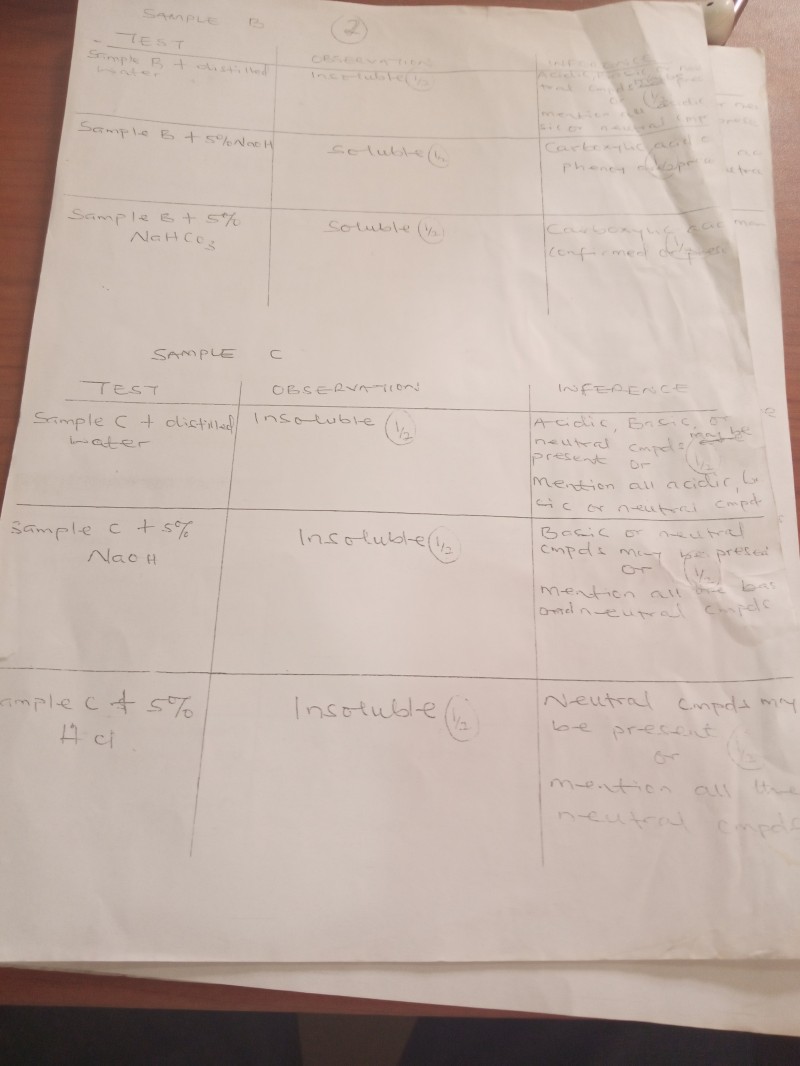 SAMPLE B 2
TEST OBSERVATION INFERENCE
Sample B + distilled
water
Insoluble (1/2)
Acidic, Basic or
tral cmpds
or (1/2)
mention all
sic or neutral cmp
Sample B + 5% NaOH
Soluble (1/2)
Carboxylic acid
Sample B + 5%
NaHCO3
Soluble (1/2)
Carboxylic
confirmed (1/2)
SAMPLE C
TEST OBSERVATION INFERENCE
Sample C + distilled
water
Insoluble (1/2)
Acidic, Basic, or
neutral cmpds may be
present or (1/2)
mention all acidic, b
sic or neutral cmpd
Sample C + 5%
NaOH
Insoluble (1/2)
Basic or neutral
cmpds may be present
or (1/2)
mention all the bas
and neutral cmpds
ample C + 5%
HCl
Insoluble (1/2)
Neutral cmpds may
be present (1/2)
or
mention all the
neutral cmpds